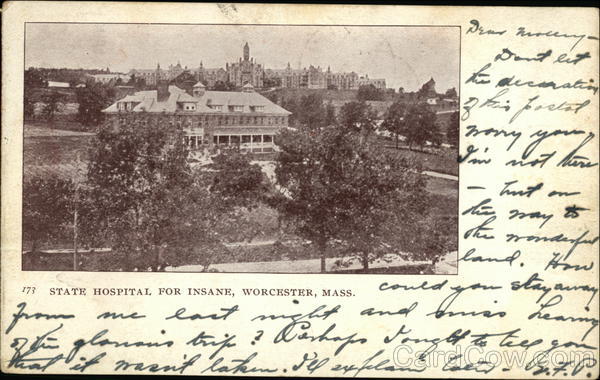 Dear Molley-
Don't let
the decoration
of this postal
worry you.
I'm not there
- but on
the way to
the wonderful
land. How
could you stay away
from me last night and miss hearing
of the glorious trip? Perhaps I ought to tell you
that it wasn't taken. I'll explain later -
173 STATE HOSPITAL FOR INSANE, WORCESTER, MASS.
CardCow.com